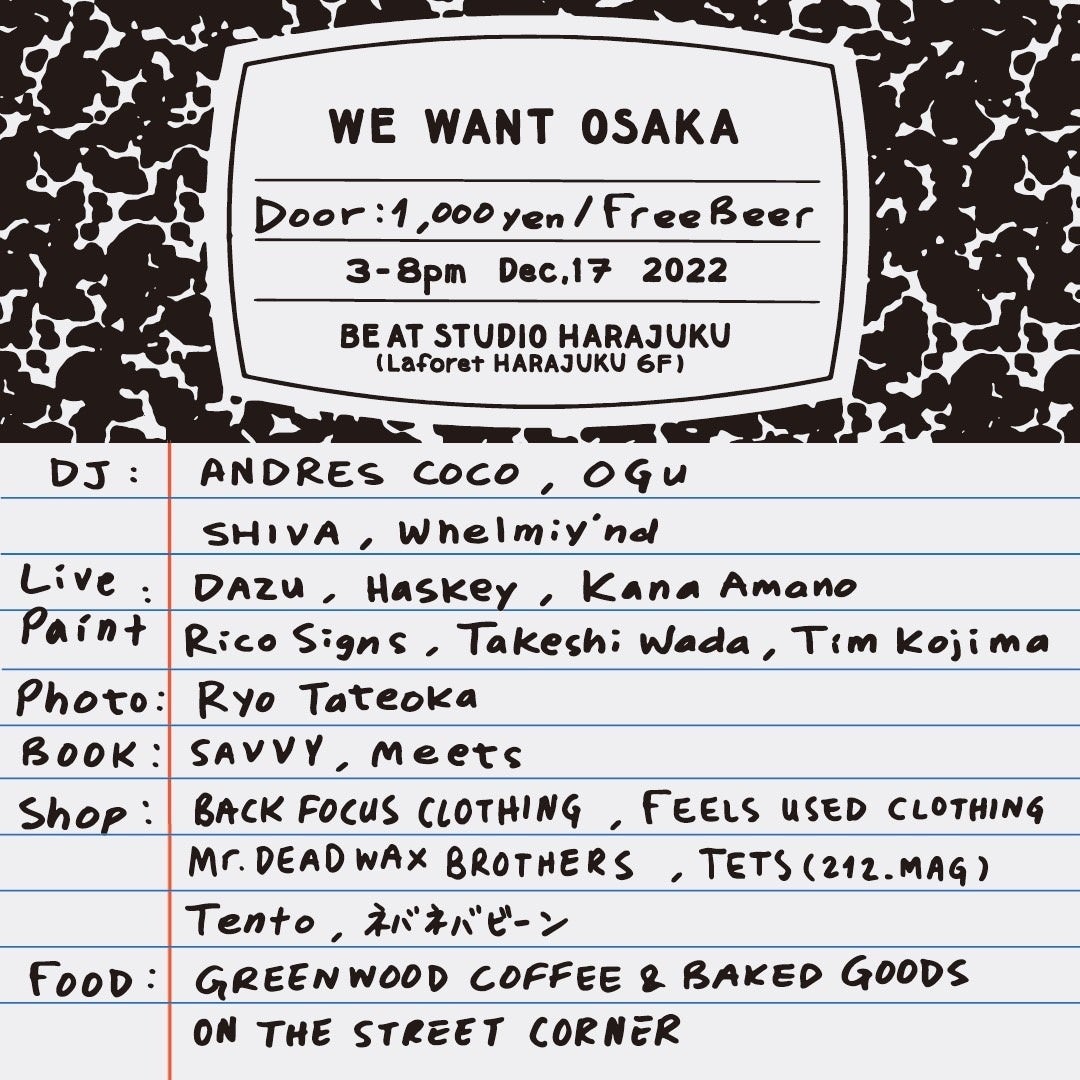 WE WANT OSAKA
Door:1,000 yen/Free Beer
3-8pm Dec.17 2022
BE AT STUDIO HARAJUKU
(Laforet HARAJUKU 6F)
DJ: ANDRES COCO, OGU
SHIVA, Whelmiy'nd
Live: DAZU, Haskey, Kana Amano
Paint Rico Signs, Takeshi Wada, Tim Kojima
Photo: Ryo Tateoka
BOOK: SAVVY, Meets
Shop: BACK FOCUS CLOTHING, FEELS USED CLOTHING
Mr. DEAD WAX BROTHERS, TETS (212.MAG)
Tento, ネバネバビーン
FOOD: GREENWOOD COFFEE & BAKED GOODS
ON THE STREET CORNER